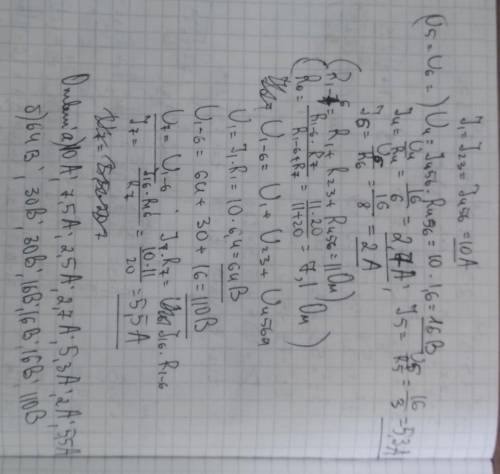 J₁=J₂₃=J₄₅₆=10A
(U₅=U₆=) U₄=J₄₅₆·R₄₅₆=10·1,6=16В
J₄=U₄/R₄=16/6=2,7A; J₅=U₅/R₅=16/3=5,3A
J₆=U₆/R₆=16/8=2A
(R₁₋₆=R₁+R₂₃+R₄₅₆=11Ом)
(R₀=R₁₋₆·R₇/R₁₋₆+R₇=11·20/11+20=7,1 Ом)
U₁₋₆=U₁+U₂₃+U₄₅₆
U₁=J₁·R=10·6,4=64В
U₁₋₆=64+30+16=110В
U₇=U₁₋₆; J₇·R₇=J₁₆·R₁₋₆
J₇=J₁₆·R₁₆/R₇=10·11/20=5,5A
а)10A; 7,5A; 2,5A; 2,7A; 5,3A; 2A; 5,5A
б)64В; 30В; 30В; 16В; 16В; 16В; 110В